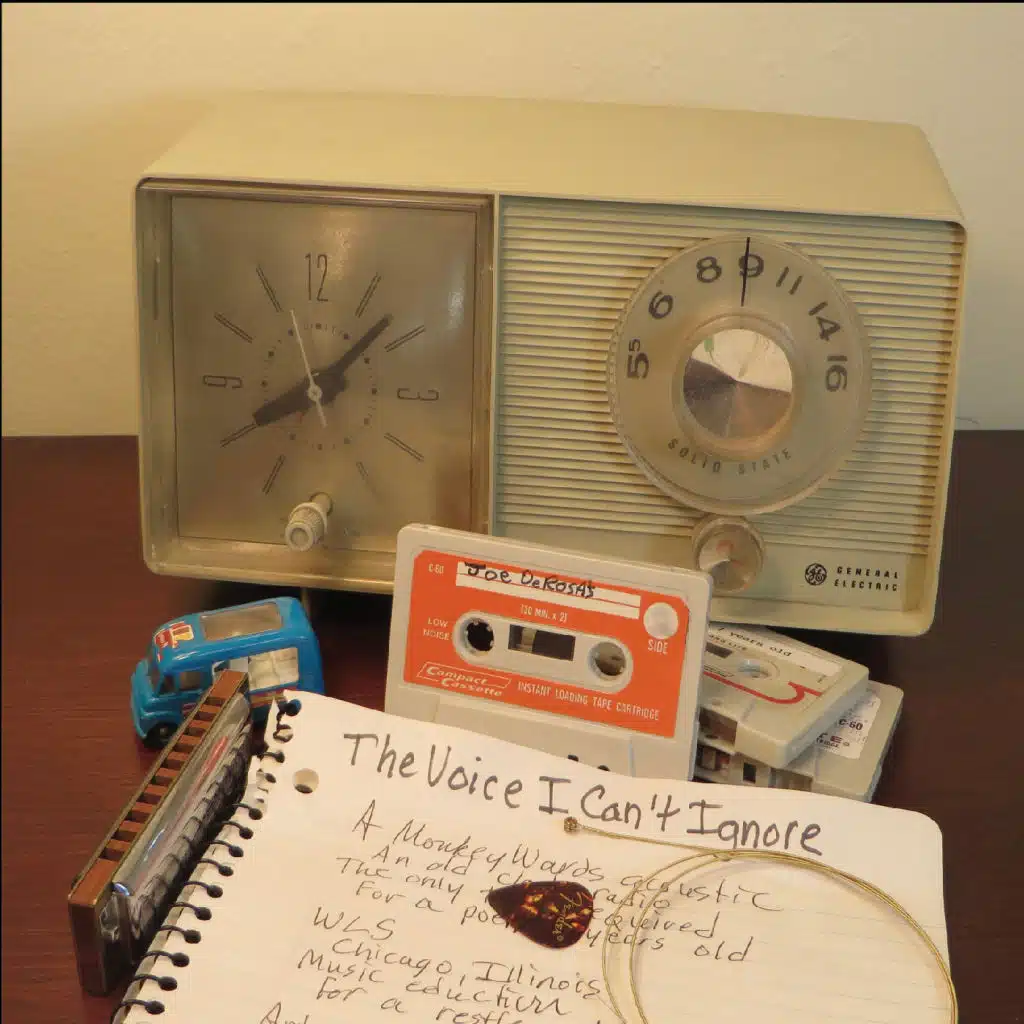 12
3
9
5⁵ 6 8 9 11 14 16
SOLID STATE
GENERAL
ELECTRIC
C-60
Joe DeRosa's
[30 MIN. x 2]
LOW
NOISE
SIDE
Compact
Cassette
INSTANT LOADING TAPE CARTRIDGE
years old
C-60
The Voice I Can't Ignore
A Monkey Wards acoustic
An old radio
The only required
For a years old
WLS
Chicago, Illinois
Music eduction
for a